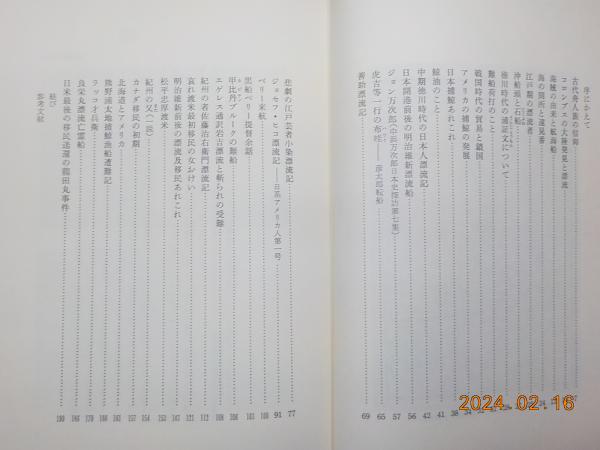 序にかえて
古代舟人族の信仰
コロンブスの大陸発見と漂流
海賊の由来と航海船
海の関所と遠見番
江戸期の漂流者
沖船頭と石船
徳川時代の浦証文について
難船荷打のこと
戦国時代の貿易と鎖国
アメリカの捕鯨の発展
日本捕鯨あれこれ 41
鯨油のこと 42
中期徳川時代の日本人漂流記 42
日本開港前後の明治維新漂流船 56
ジョン万次郎(中浜万次郎日本史探訪第七集) 57
虎吉等一行の布哇 彦太郎転船 65
善助漂流記 69
悲劇の江戸芸者小染漂流記 77
ジョセフ・ヒコ漂流記——日系アメリカ人第一号 91
ペリー来航 103
黒船ペリー提督余話
甲比丹ブルークの難船
エゲレス通訳岩吉漂流と斬られの受難 108
紀州の者佐藤治右衛門漂流記 112
哀れ渡米最初移民の女おけい 121
明治維新前後の漂流及移民あれこれ 142
松平忠厚渡米 152
紀州の又(一説) 153
カナダ移民の初期 154
北海道とアメリカ 157
ラッコ才兵衛 162
熊野浦太地捕鯨漁船遭難記
良栄丸漂流亡霊船 179
日米最後の移民送還の龍田丸事件
結び
参考文献
2024.02.16